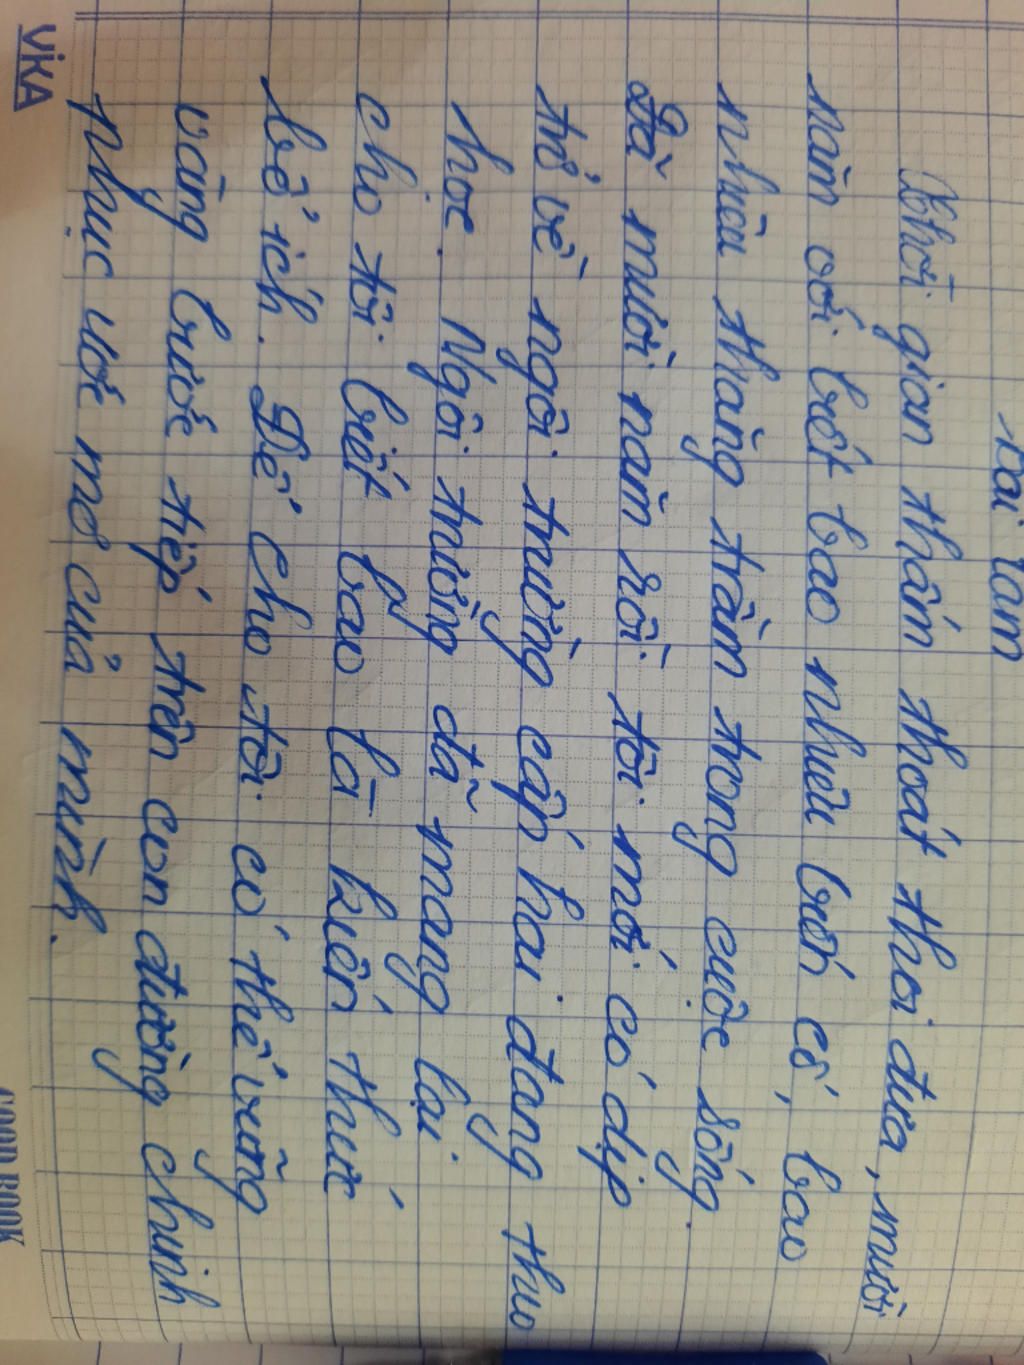 Bài làm
Thời gian thấm thoát thoi đưa, mười
năm ơi biết bao nhiêu biến cố, bao
nhiêu thăng trầm trong cuộc sống.
Đã mười năm rồi tôi mới có dịp
trở về ngôi trường cấp hai đang theo
học. Ngôi trường đã mang lại
cho tôi biết bao là kiến thức
bổ ích. Để cho tôi có thể vững
vàng bước tiếp trên con đường chinh
phục ước mơ của mình.
VIKA
GOOD BOOK